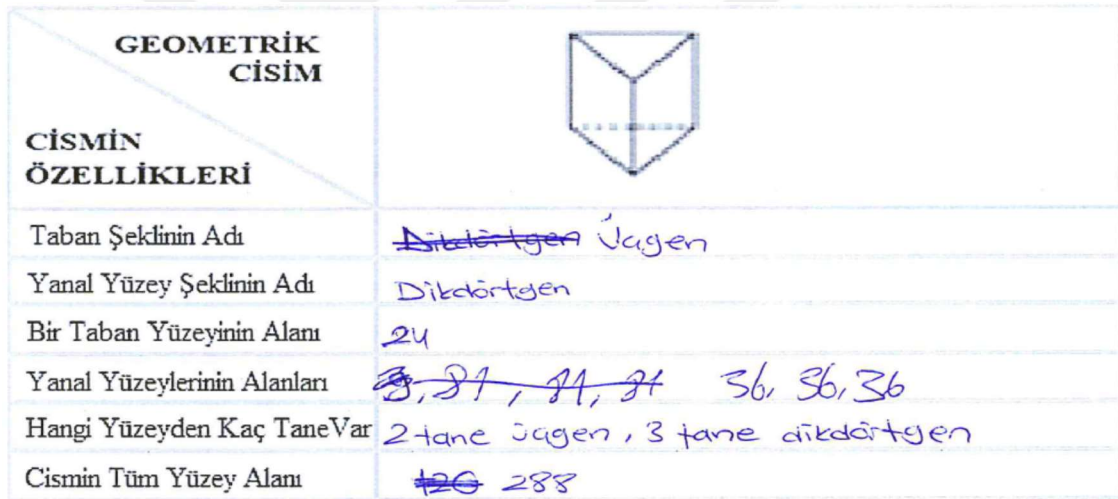 GEOMETRİK
CİSİM
CİSMİN
ÖZELLİKLERİ
Taban Şeklinin Adı Dikdörtgen Üçgen
Yanal Yüzey Şeklinin Adı Dikdörtgen
Bir Taban Yüzeyinin Alanı 24
Yanal Yüzeylerinin Alanları 81, 81, 81 36, 36, 36
Hangi Yüzeyden Kaç TaneVar 2 tane üçgen, 3 tane dikdörtgen
Cismin Tüm Yüzey Alanı 120 288